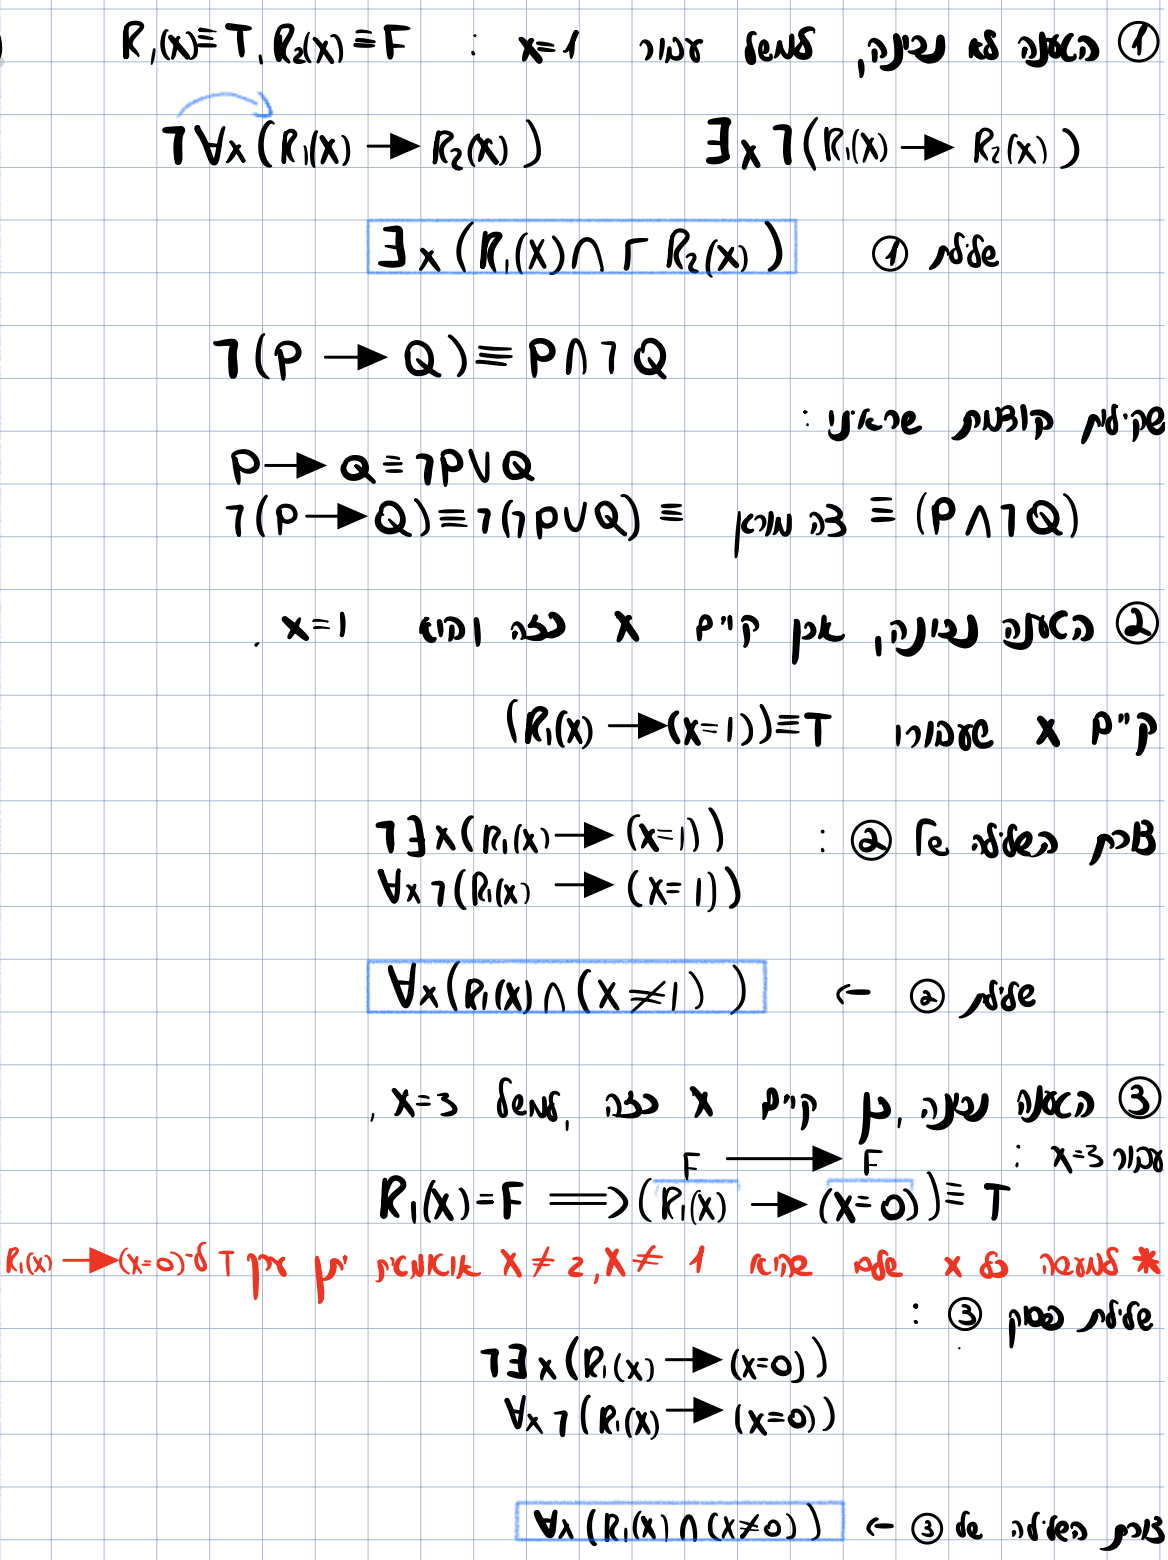 ① הטענה לא נכונה, למשל עבור x=1 : R₁(x)≡T, R₂(x)≡F
¬∀x(R₁(x) → R₂(x)) ∃x¬(R₁(x) → R₂(x))
שלילת ① ∃x(R₁(x)∩ ⌐ R₂(x))
¬(P → Q)≡ P∩¬Q
שקילות קודמות שראינו :
P→Q≡¬P∪Q
¬(P→Q)≡¬(¬P∪Q)≡ דה מורגן ≡(P∧¬Q)
② הטענה נכונה, אכן קיים x כזה והוא x=1 .
קיים x שעבורו (R₁(x) →(x=1))≡T
צורת השלילה של ② : ¬∃x(R₁(x)→(x=1))
∀x¬(R₁(x) → (x=1))
שלילת ② ← ∀x(R₁(x)∩(x≠1))
③ הטענה נכונה, כן קיים x כזה, למשל x=3,
עבור x=3 : F → F
R₁(x)=F ⟹(R₁(x) →(x=0))≡ T
* למעשה כל x שלם שהוא x≠2, x≠1 אוטומטית יתן ערך T ל-R₁(x)→(x=0)
שלילת פסוק ③ :
¬∃x(R₁(x) →(x=0))
∀x¬(R₁(x)→(x=0))
צורת השלילה של ③ ← ∀x(R₁(x)∩(x≠0))